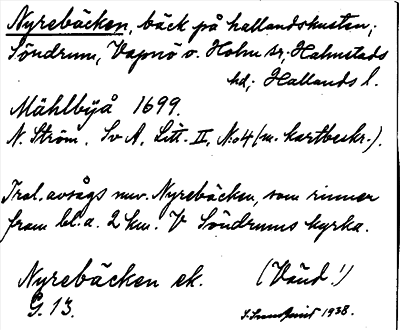 Nyrebäcken, bäck på hallandskusten;
Söndrum, Vapnö o. Holm sr; Halmstads
hd; Hallands l.
Mählbÿå 1699.
N. Ström. Sv A. Litt. II, No 4 (m. kartbeskr.).
Trol. avsågs nuv. Nyrebäcken, som rinner
fram bl. a. 2 km. V Söndrums kyrka.
Nyrebäcken ek. (Vänd!)
G. 13. 1938.